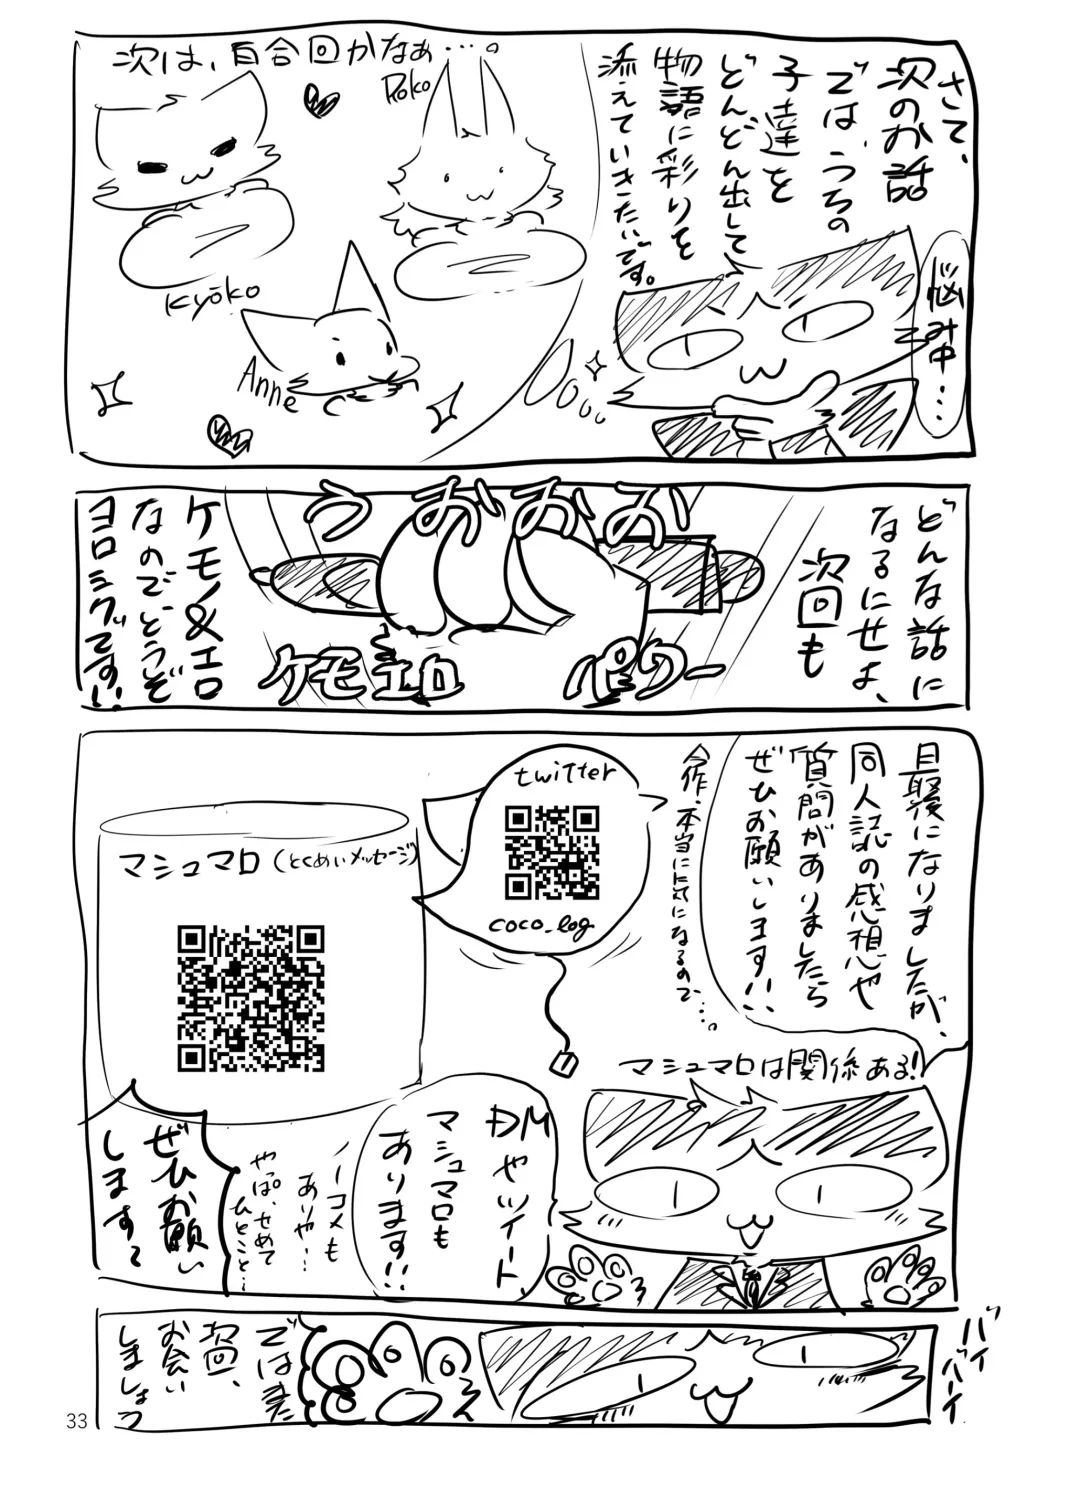 さて、
次のお話
では、うちの
子達を
どんどん出して
物語に彩りを
添えていきたいです。
悩み中…
次は、百合回かなぁ…。
Roko
Kyōko
Anne
どんな話に
なるにせよ、
次回も
うおおおお
ケモエロ パワー
ケモノ&エロ
なのでどうぞ
ヨロシクです!!
最後になりましたが、
同人誌の感想や
質問がありましたら
ぜひお願いします!!
今作、本当に気になるので…。
twitter
coco_log
マシュマロ(とくめいメッセージ)
マシュマロは関係ある!
DMやツイート、
マシュマロも
あります!!
ノーコメも
ありや…
やっぱ、せめて
ひとこと…
ぜひお願い
します
バイ
バーイ
ではまた
次回、
お会い
しましょう
33